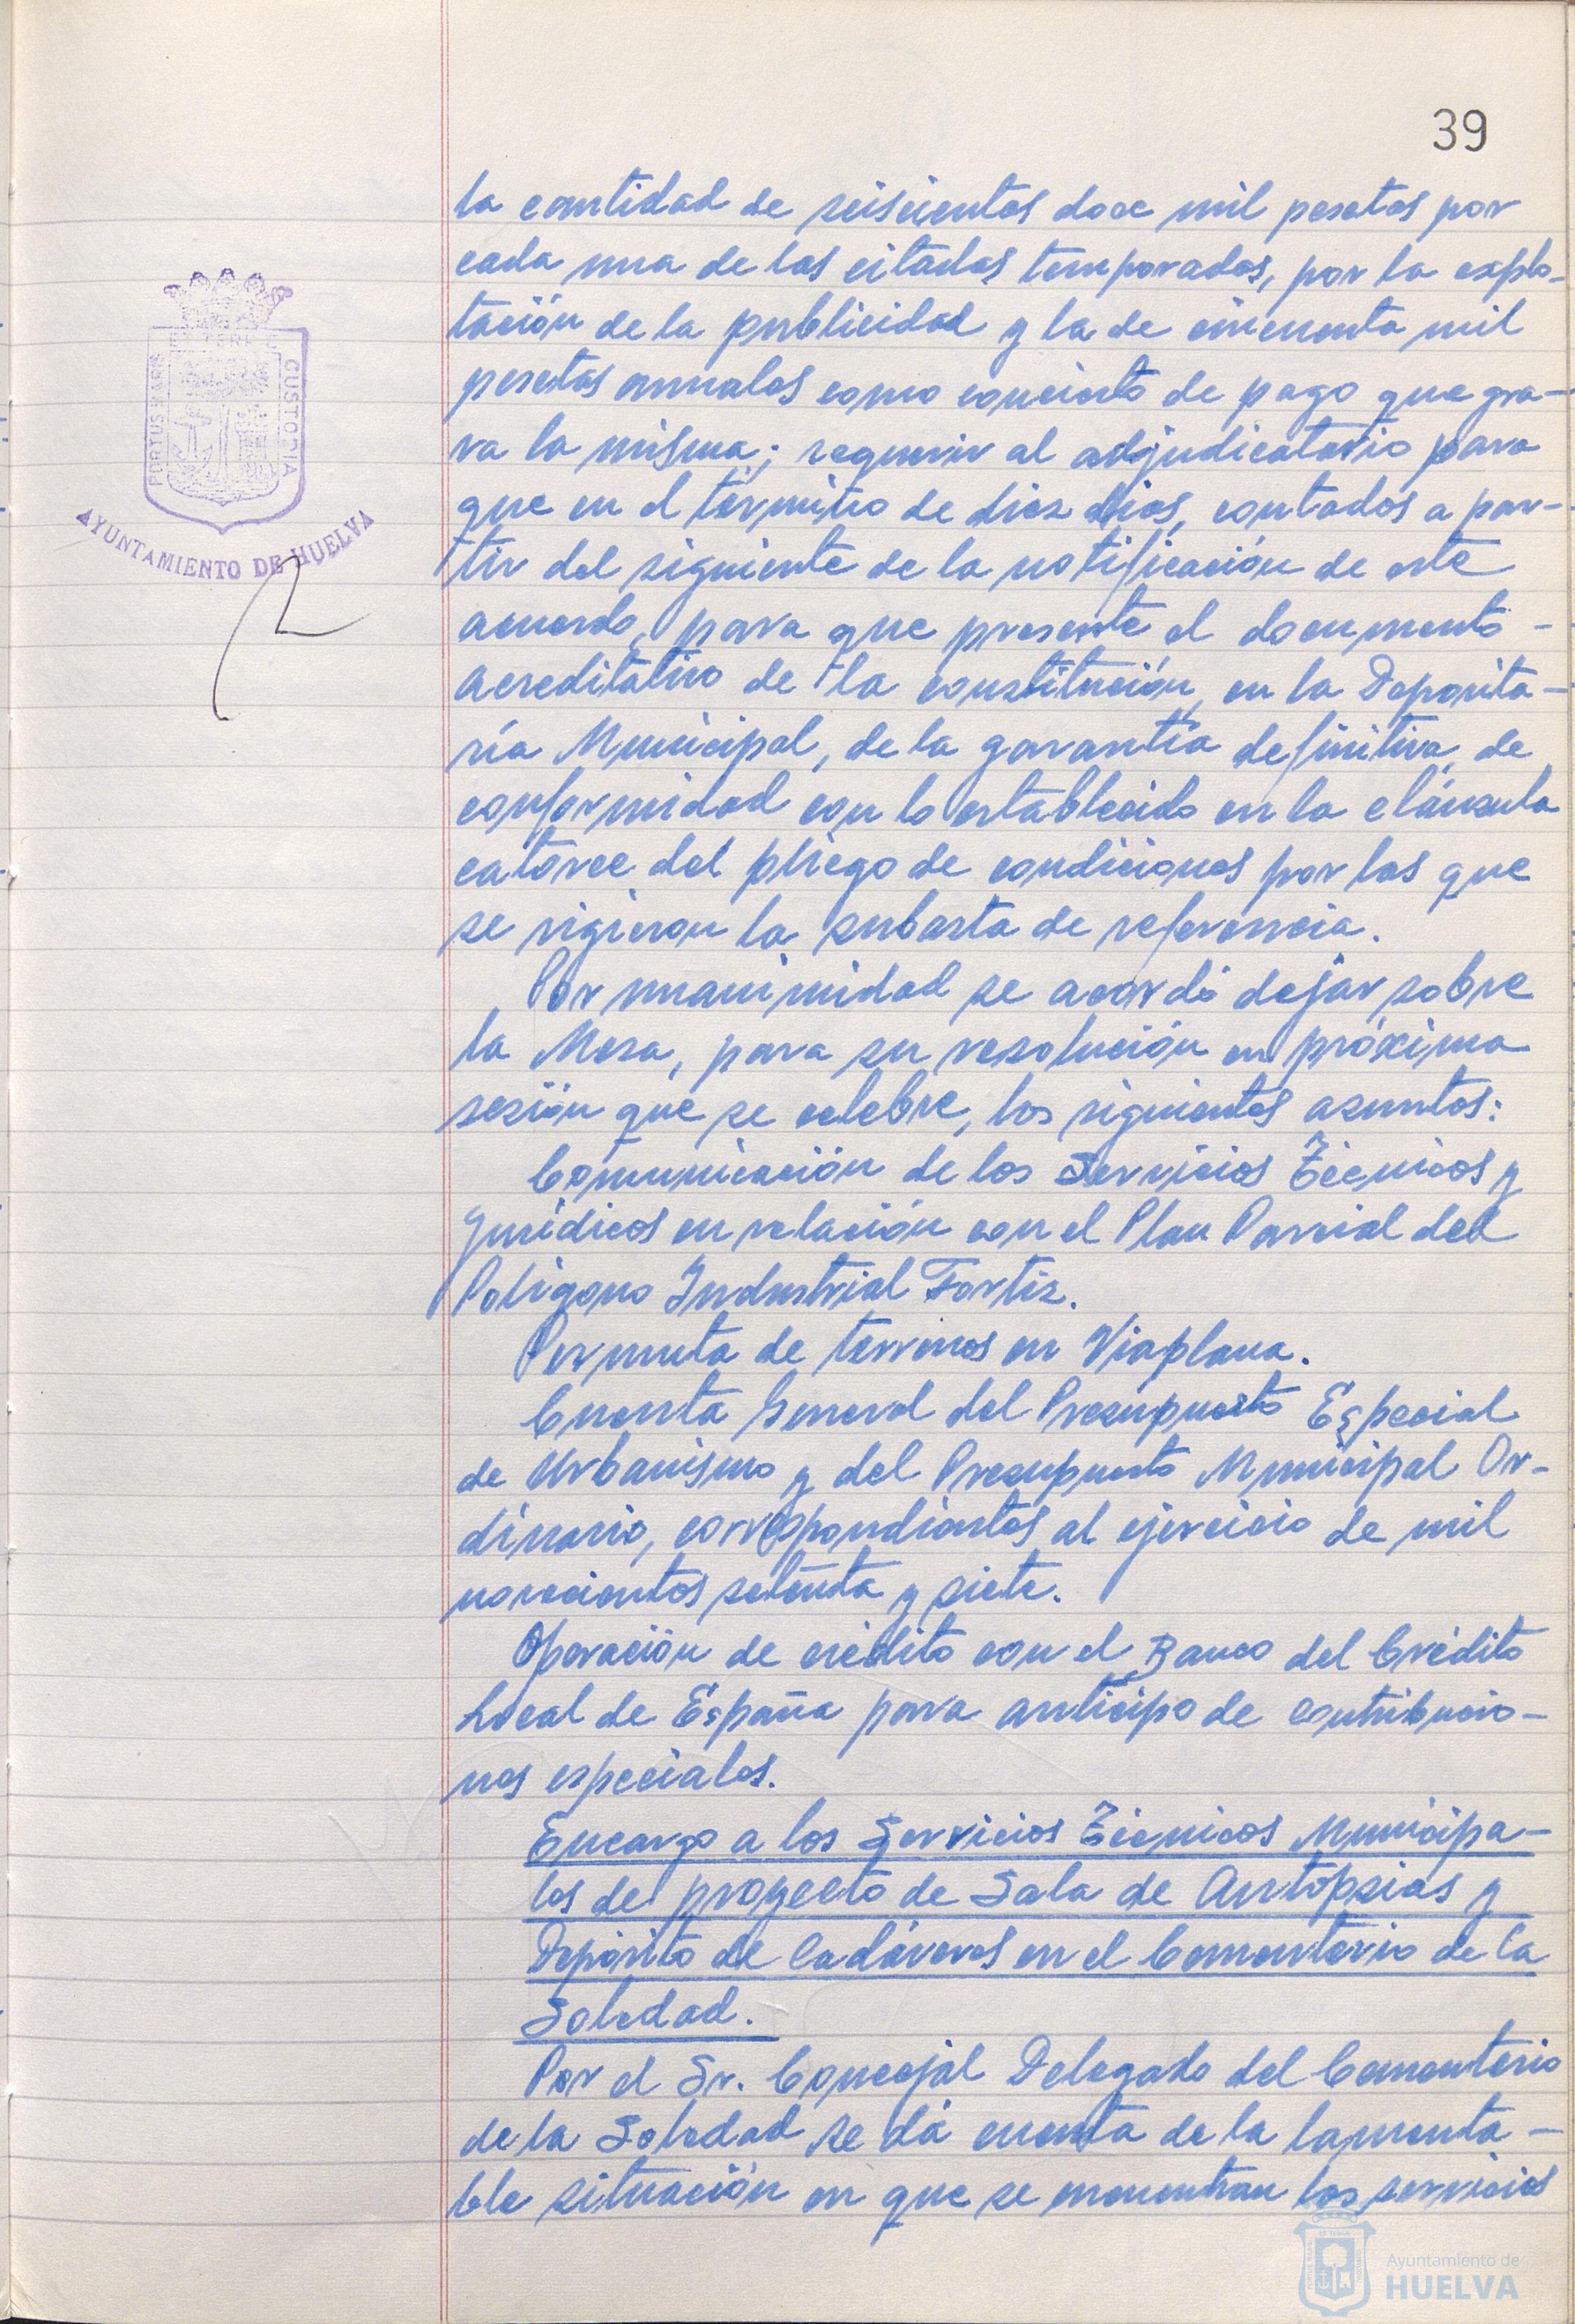 39
la cantidad de seiscientas doce mil pesetas por
cada una de las citadas temporadas, por la explo-
tación de la publicidad y la de cincuenta mil
pesetas anuales como concierto de pago que gra-
va la misma; requerir al adjudicatario para
que en el término de diez días, contados a par-
tir del siguiente de la notificación de este
acuerdo, para que presente el documento -
acreditativo de la constitución, en la Deposita-
ría Municipal, de la garantía definitiva, de
conformidad con lo establecido en la cláusula
catorce del pliego de condiciones por las que
se rigieron la subasta de referencia.
Por unanimidad se acordó dejar sobre
la Mesa, para su resolución en próxima
sesión que se celebre, los siguientes asuntos:
Comunicación de los Servicios Técnicos y
Jurídicos en relación con el Plan Parcial del
Polígono Industrial Fortiz.
Permuta de terrenos en Viaplana.
Cuenta General del Presupuesto Especial
de Urbanismo y del Presupuesto Municipal Or-
dinario, correspondientes al ejercicio de mil
novecientos setenta y siete.
Operación de crédito con el Banco del Crédito
Local de España para anticipo de contribucio-
nes especiales.
Encargo a los Servicios Técnicos Municipa-
les del proyecto de Sala de Autopsias y
Depósito de Cadáveres en el Cementerio de la
Soledad.
Por el Sr. Concejal Delegado del Cementerio
de la Soledad se dá cuenta de la lamenta-
ble situación en que se encuentran los servicios
PORTUS MARIS
ET TERRE
CUSTODIA
AYUNTAMIENTO DE HUELVA
Ayuntamiento de
HUELVA